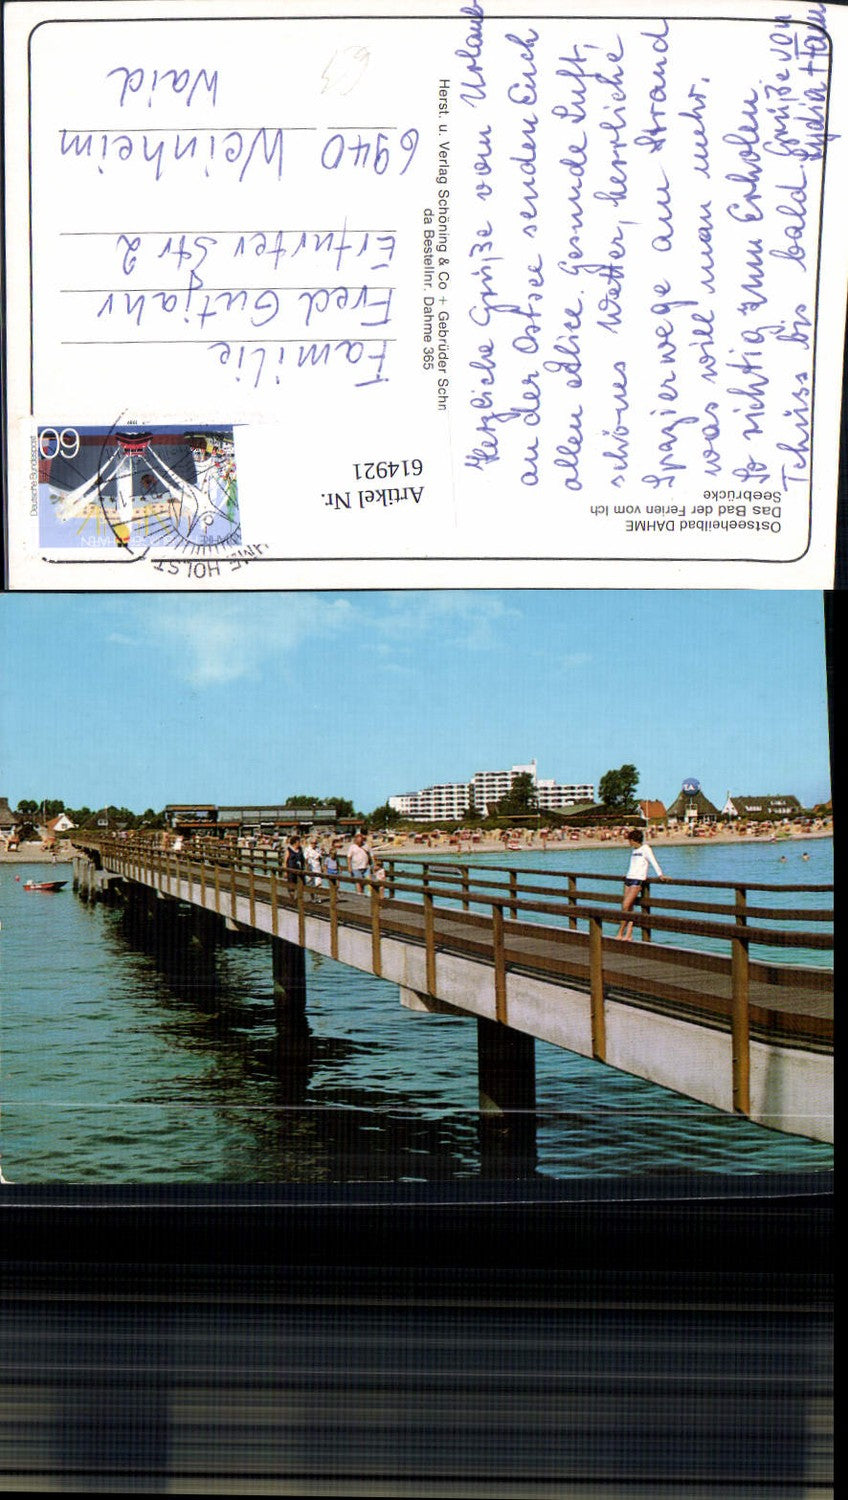 Ostseeheilbad DAHME
Das Bad der Ferien vom Ich
Seebrücke
Herzliche Grüße vom Urlaub
an der Ostsee senden Euch
allen Alice. Gesunde Luft,
schönes Wetter, herrliche
Spazierwege am Strand
was will man mehr.
So richtig zum Erholen.
Tchüss bis bald Grüße von
Lydia +
Herst. u. Verlag Schöning & Co + Gebrüder Schm
da Bestellnr. Dahme 365
Artikel Nr.
614921
Deutsche Bundespost
60
HAFEN
JAHRE
HOLST
Familie
Fred Gutjahr
Erfurter Str 2
6940 Weinheim
Waid